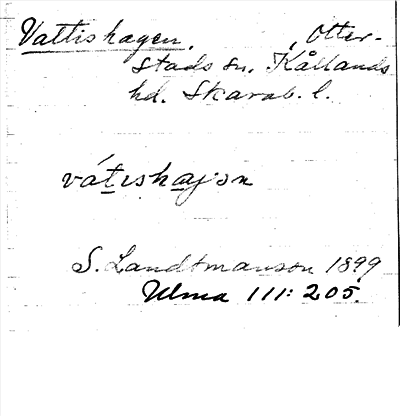 Vattishagen, Otter-
stads sn. Kållands
hd. Skarab. l.
vátishaj·ən
S. Landtmanson 1899
Ulma 111: 205.